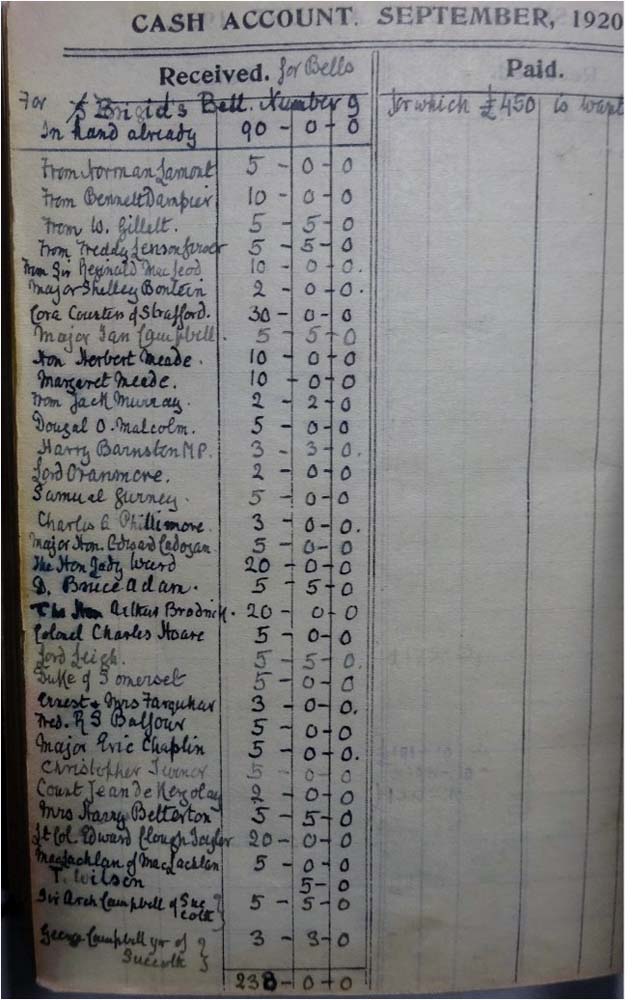 CASH ACCOUNT. SEPTEMBER, 1920
Received. for Bells
Paid.
For St Brigid's Bell. Number 9 for which £450 is want
In hand already 90 - 0 - 0
From Norman Lamont 5 - 0 - 0
From Bennett Dampier 10 - 0 - 0
From W. Gillett. 5 - 5 - 0
From Freddy 5 - 5 - 0
From Sir Reginald MacLeod 10 - 0 - 0.
Major Shelley Bontein 2 - 0 - 0.
Cora Countess of Strafford. 30 - 0 - 0
Major Ian Campbell. 5 - 5 - 0
Hon Herbert Meade. 10 - 0 - 0
Margaret Meade. 10 - 0 - 0
From Jack Murray. 2 - 2 - 0
Dougal O. Malcolm. 5 - 0 - 0
Harry Barnston M.P. 3 - 3 - 0.
Lord Oranmore. 2 - 0 - 0
Samuel Gurney. 5 - 0 - 0
Charles G Phillimore. 3 - 0 - 0.
Major Hon. Edward Cadogan. 5 - 0 - 0
The Hon Lady Ward 20 - 0 - 0
D. Bruce Adam. 5 - 5 - 0
The Hon Arthur Brodrick. 20 - 0 - 0
Colonel Charles Hoare 5 - 0 - 0
Lord Leigh. 5 - 5 - 0.
Duke of Somerset 5 - 0 - 0
Ernest & Mrs Farquhar 3 - 0 - 0.
Fred. R S Balfour 5 - 0 - 0
Major Eric Chaplin 5 - 0 - 0.
Christopher Turnor 5 - 0 - 0
Count Jean de Kergolay 2 - 0 - 0
Mrs Harry Betterton 5 - 5 - 0
Lt Col. Edward Clough Taylor 20 - 0 - 0
MacLachlan of MacLachlan 5 - 0 - 0
T. Wilson 5 - 0
Sir Arch Campbell of Suc
coth } 5 - 5 - 0
George Campbell yr of
Succoth } 3 - 3 - 0
238 - 0 - 0